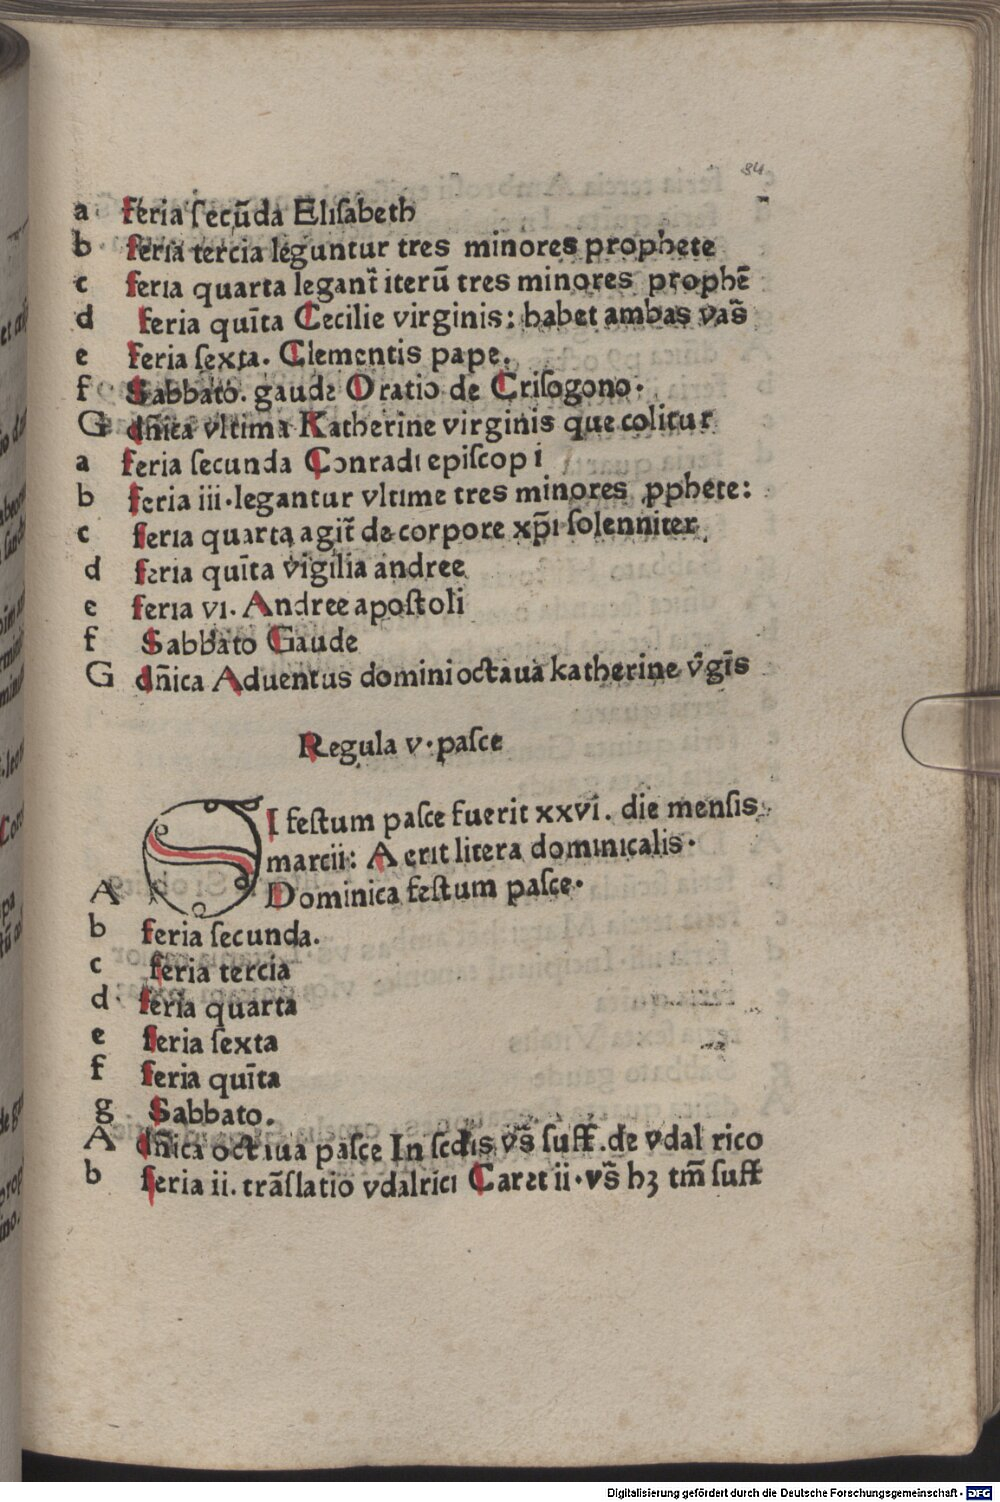 84
a feria ſecūda Eliſabeth
b feria tercia leguntur tres minores prophete
c feria quarta legant̄ iterū tres minores prophē
d feria quīta Cecilie virginis: habet ambas vās̄
e feria ſexta. Clementis pape.
f Sabbato. gaude Oratio de Criſogono.
G dn̄ica vltima Katherine virginis que colitur
a feria ſecunda Conradi epiſcopi
b feria iii.legantur vltime tres minores ꝓphete:
c feria quarta agit̄ de corpore xp̄i ſolenniter
d feria quīta vigilia andree
e feria vi. Andree apoſtoli
f Sabbato Gaude
G dn̄ica Aduentus domini octaua katherine v̄gīs
Regula v.paſce
SI feſtum paſce fuerit xxvi. die menſis
marcii: A erit litera dominicalis.
A Dominica feſtum paſce.
b feria ſecunda.
c feria tercia
d. feria quarta
e feria ſexta
f feria quīta
g Sabbato.
A dn̄ica octaua paſce In ſcd̄is vs̄ ſuff̄.de vdalrico
b feria ii. trāſlatio vdalrici Caret ii.vs̄ hꝫ tm̄ ſuff̄
Digitalisierung gefördert durch die Deutsche Forschungsgemeinschaft - DFG